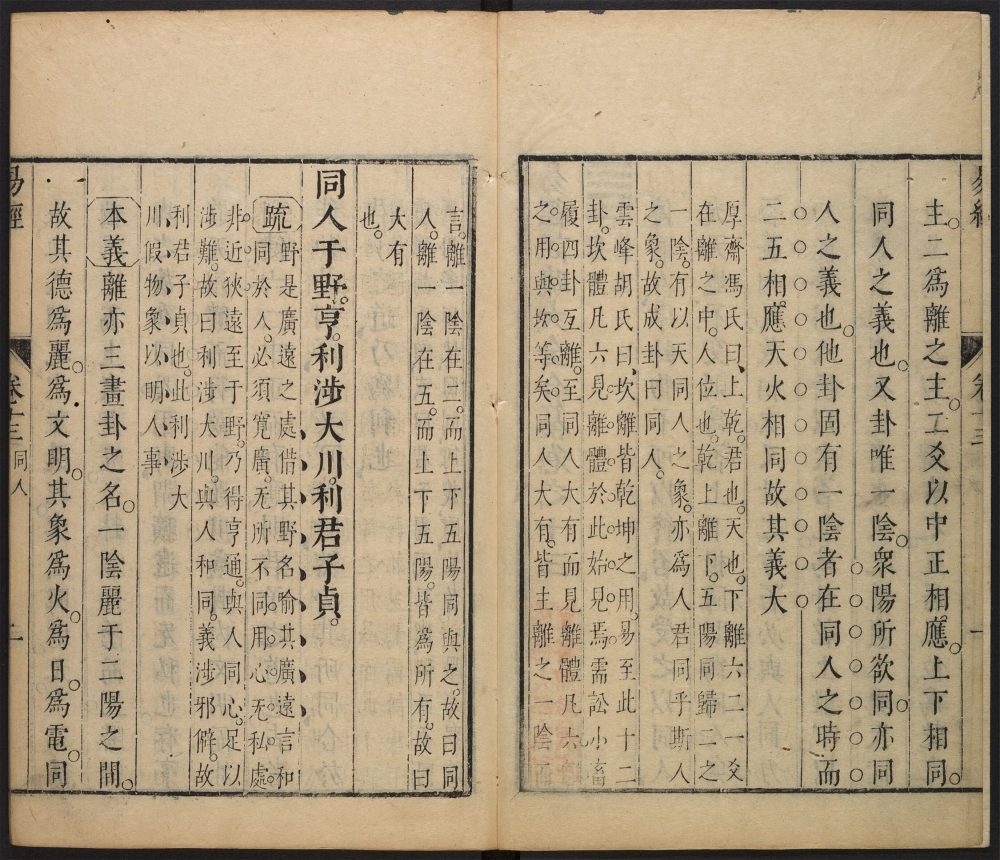 主。二爲離之主。二爻以中正相應。上下相同。
同人之義也。又卦唯一陰。衆陽所欲同。亦同
人之義也。他卦固有一陰者在同人之時而
二五相應天火相同故其義大
厚齋馮氏曰、上乾。君也。天也。下離六二一爻
在離之中。人位也。乾上離下。五陽同歸二之
一陰。有以天同人之象。亦爲人君同乎斯人
之象。故成卦曰同人。
雲峰胡氏曰、坎離皆乾坤之用。易至此十二
卦。坎體凡六見離體於此始見焉需訟小畜
履四卦互離。至同人大有而見離體凡六
之。用與坎等矣。同人大有。皆主離之一陰而
言。離一陰在二。而上下五陽同與之。故曰同
人。離一陰在五。而上下五陽。皆爲所有。故曰
大有
也。
同人于野。亨。利涉大川。利君子貞。
疏 野是廣遠之處借其野名喻其廣遠言和
同於人。必須寬廣。无所不同。用心无私。處
非近狹。遠至于野。乃得亨通。與人同心。足以
涉難。故曰利涉大川。與人和同。義涉邪僻。故
利君子貞也。此利涉大
川、假物象以明人事
本義 離亦三畫卦之名。一陰麗于二陽之間。
故其德爲麗。爲文明。其象爲火。爲日。爲電。同
易經
卷十三 同人
二
易經
卷十三
一